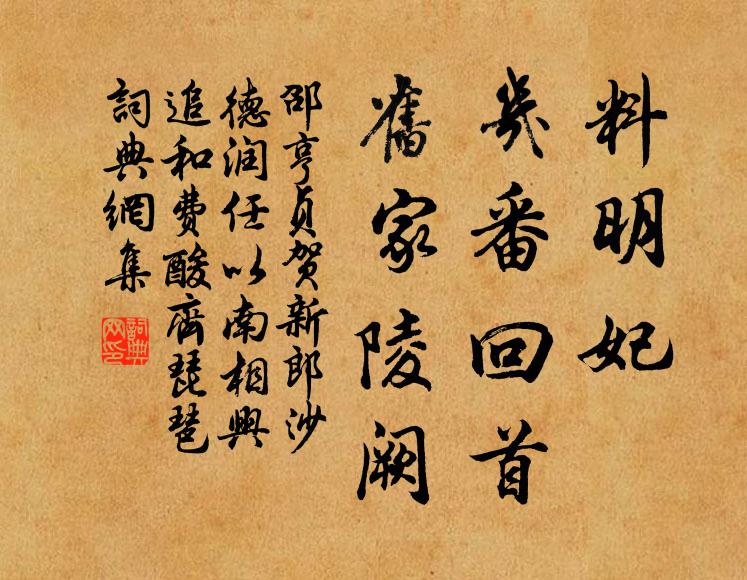 料明妃
幾番回首
舊家陵阙
邵亨貞賀新郎沙
德润任以南相興
追和费酸齋琵琶
詞典網集
詞典
网印